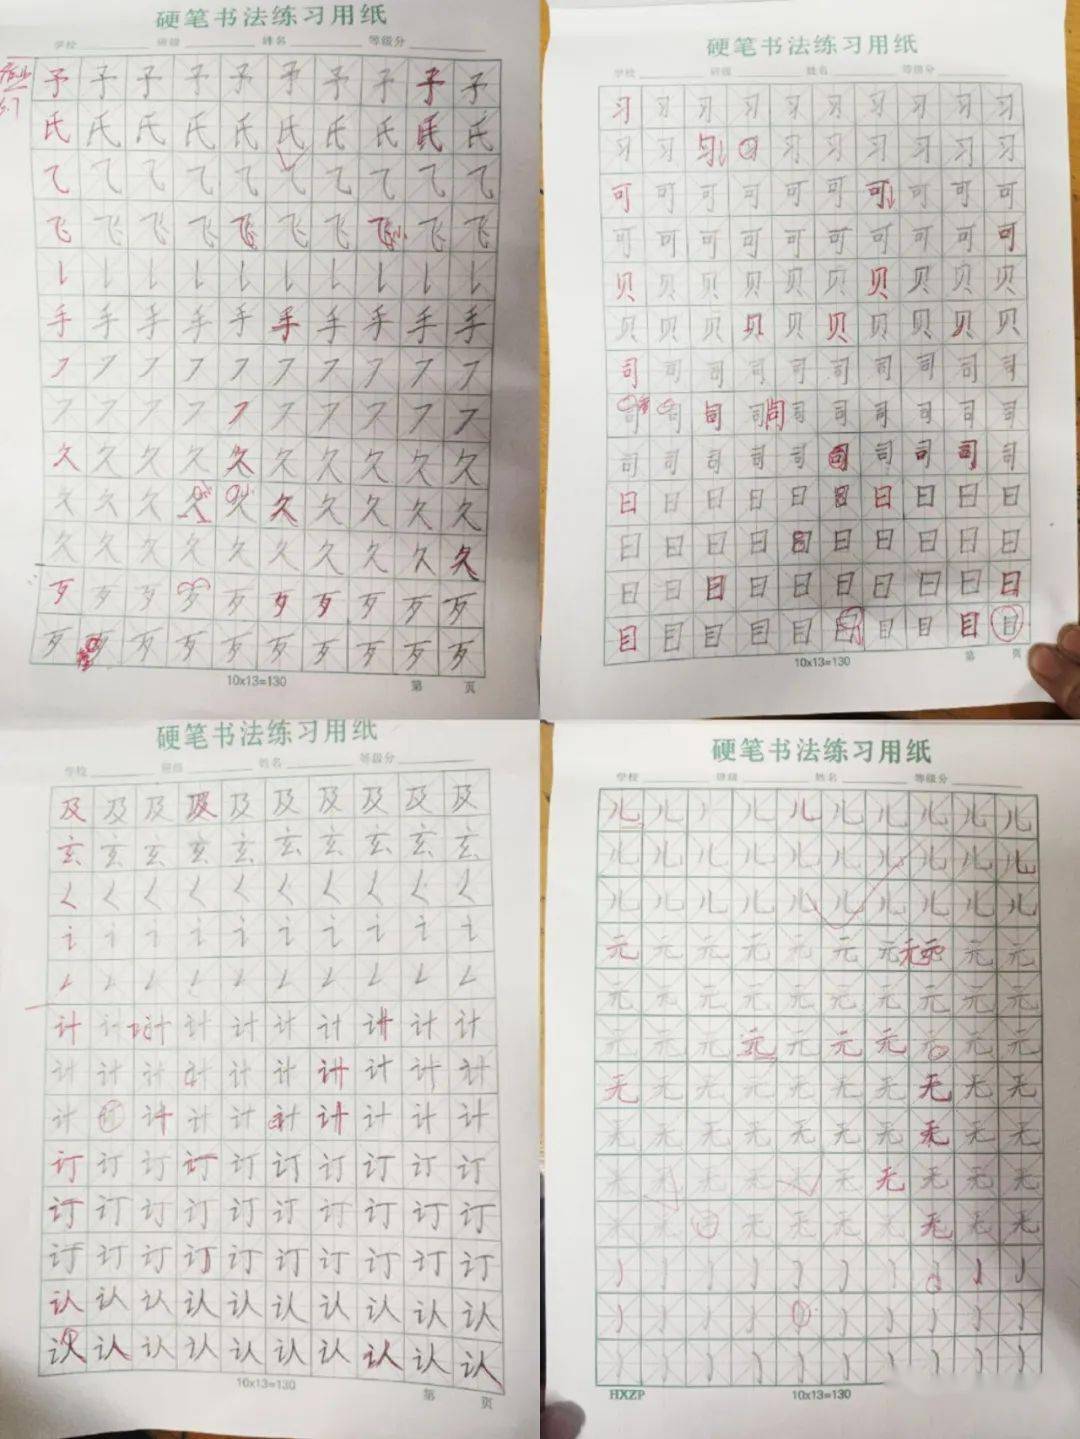 硬笔书法练习用纸
学校 班级 姓名 等级分
予 予 予 予 予 予 予 予 予 予
氏 氏 氏 氏 氏 氏 氏 氏 氏 氏
乁 乁 乁 乁 乁 乁 乁 乁 乁 乁
飞 飞 飞 飞 飞 飞 飞 飞 飞 飞
手 手 手 手 手 手 手 手 手 手
久 久 久 久 久 久 久 久 久 久
久 久 久 久 久 久 久 久 久 久
久 久 久 久 久 久 久 久 久 久
歹 歹 歹 歹 歹 歹 歹 歹 歹 歹
歹 歹 歹 歹 歹 歹 歹 歹 歹 歹
10x13=130 第 页
硬笔书法练习用纸
学校 班级 姓名 等级分
习 习 习 习 习 习 习 习 习 习
习 习 习 习 习 习 习 习 习 习
可 可 可 可 可 可 可 可 可 可
可 可 可 可 可 可 可 可 可 可
贝 贝 贝 贝 贝 贝 贝 贝 贝 贝
贝 贝 贝 贝 贝 贝 贝 贝 贝 贝
司 司 司 司 司 司 司 司 司 司
司 司 司 司 司 司 司 司 司 司
司 司 司 司 司 司 司 司 司 司
日 日 日 日 日 日 日 日 日 日
日 日 日 日 日 日 日 日 日 日
日 日 日 日 日 日 日 日 日 日
目 目 目 目 目 目 目 目 目 目
10x13=130 第 页
硬笔书法练习用纸
学校 班级 姓名 等级分
及 及 及 及 及 及 及 及 及 及
玄 玄 玄 玄 玄 玄 玄 玄 玄 玄
讠 讠 讠 讠 讠 讠 讠 讠 讠 讠
计 计 计 计 计 计 计 计 计 计
计 计 计 计 计 计 计 计 计 计
计 计 计 计 计 计 计 计 计 计
订 订 订 订 订 订 订 订 订 订
订 订 订 订 订 订 订 订 订 订
订 订 订 订 订 订 订 订 订 订
认 认 认 认 认 认 认 认 认 认
认 认 认 认 认 认 认 认 认 认
10x13=130 第 页
硬笔书法练习用纸
学校 班级 姓名 等级分
儿 儿 儿 儿 儿 儿 儿 儿 儿 儿
儿 儿 儿 儿 儿 儿 儿 儿 儿 儿
儿 儿 儿 儿 儿 儿 儿 儿 儿 儿
元 元 元 元 元 元 元 元 元 元
元 元 元 元 元 元 元 元 元 元
元 元 元 元 元 元 元 元 元 元
无 无 无 无 无 无 无 无 无 无
无 无 无 无 无 无 无 无 无 无
无 无 无 无 无 无 无 无
无 无 无 无 无 无 无 无
HXZP 10x13=130